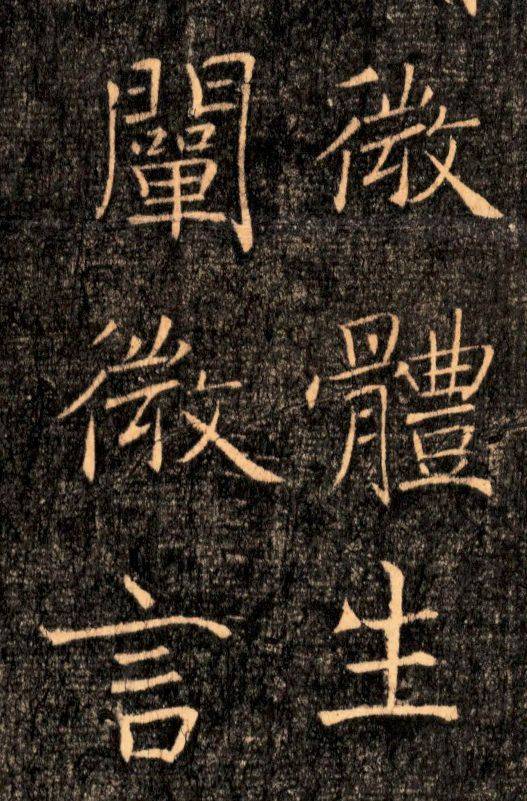 微體生
闡微言